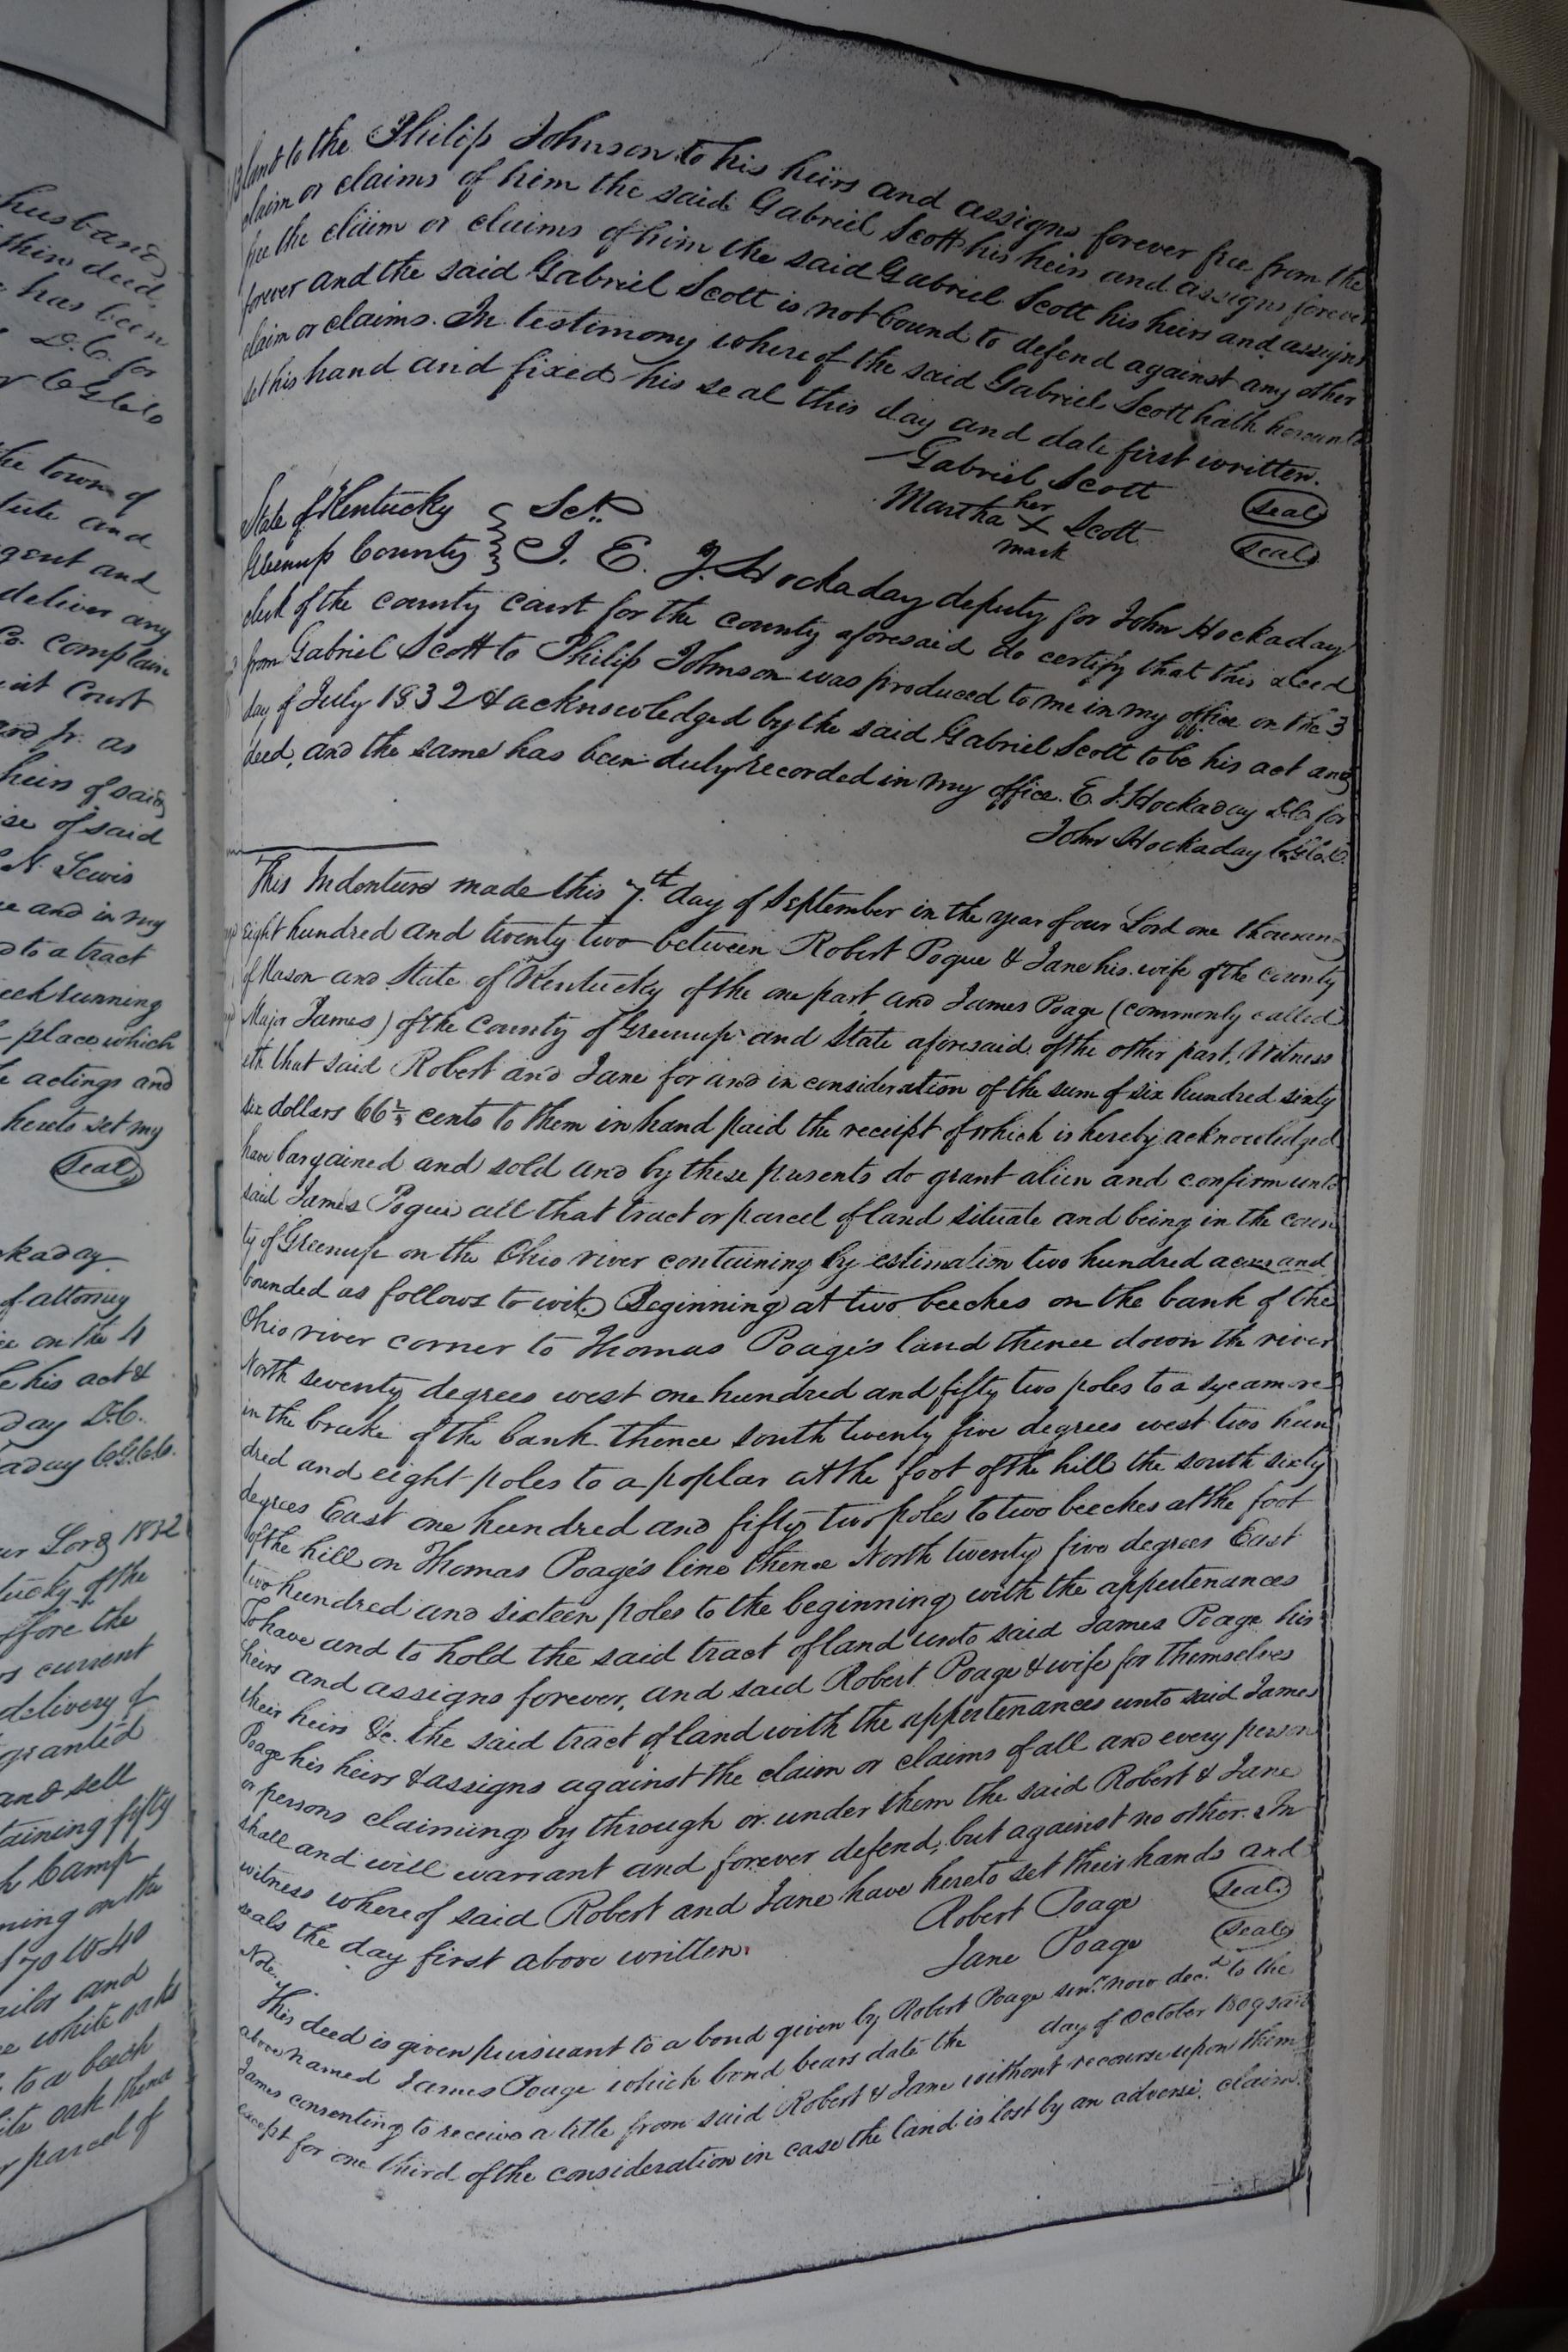 husband
thin deed
has been
D.C. for
the town of
gent and
deliver any
Co. complain
Court
and Jr. as
heirs of said
se of said
N. Lewis
and in my
to a tract
running
place which
actings and
hereto set my
Seal
kaday
of attorney
on the 4
his act &
day D.C.
aday C.G.C.C.
Lord 1832
tucky of the
the
current
delivery of
granted
and sell
taining fifty
Camp
ning on the
and
white oaks
to a beech
oak thence
parcel of
land to the Philip Johnson to his heirs and assigns forever free from the
claim or claims of him the said Gabriel Scott his heirs and assigns forever
free the claim or claims of him the said Gabriel Scott his heirs and assigns
forever and the said Gabriel Scott is not bound to defend against any other
claim or claims. In testimony whereof the said Gabriel Scott hath hereunto
set his hand and fixed his seal this day and date first written.
Gabriel Scott Seal
her
Martha X Scott Seal
mark
State of Kentucky } Sct.
Greenup County } I. E. J. Hockaday deputy for John Hockaday
clerk of the county court for the county aforesaid do certify that this deed
from Gabriel Scott to Philip Johnson was produced to me in my office on the 3
day of July 1832 & acknowledged by the said Gabriel Scott to be his act and
deed, and the same has been duly recorded in my office. E. J. Hockaday D.C. for
John Hockaday C.G.C.C.
This Indenture made this 7th day of September in the year of our Lord one thousand
eight hundred and twenty two between Robert Pogue & Jane his wife of the county
of Mason and State of Kentucky of the one part and James Poage (commonly called
Major James) of the County of Greenup and State aforesaid of the other part. Witness
eth that said Robert and Jane for and in consideration of the sum of six hundred sixty
six dollars 66 2/3 cents to them in hand paid the receipt of which is hereby acknowledged
have bargained and sold and by these presents do grant alien and confirm unto
said James Pogue all that tract or parcel of land situate and being in the coun
ty of Greenup on the Ohio river containing by estimation two hundred acres and
bounded as follows to wit. Beginning at two beeches on the bank of the
Ohio river corner to Thomas Poage's land thence down the river
North seventy degrees west one hundred and fifty two poles to a sycamore
in the brake of the bank thence south twenty five degrees west two hun
dred and eight poles to a poplar at the foot of the hill the south sixty
degrees East one hundred and fifty two poles to two beeches at the foot
of the hill on Thomas Poage's line thence North twenty five degrees East
two hundred and sixteen poles to the beginning with the appertenances
To have and to hold the said tract of land unto said James Poage his
heirs and assigns forever, and said Robert Poage & wife for themselves
their heirs &c. the said tract of land with the appertenances unto said James
Poage his heirs & assigns against the claim or claims of all and every person
or persons claiming by through or under them the said Robert & Jane
shall and will warrant and forever defend, but against no other. In
witness whereof said Robert and Jane have hereto set their hands and
seals the day first above written.
Robert Poage Seal
Jane Poage Seal
Note.
This deed is given pursuant to a bond given by Robert Poage senr. now decd. to the
above named James Poage which bond bears date the day of October 1809 said
James consenting to receive a title from said Robert & Jane without recourse upon them
except for one third of the consideration in case the land is lost by an adverse claim.